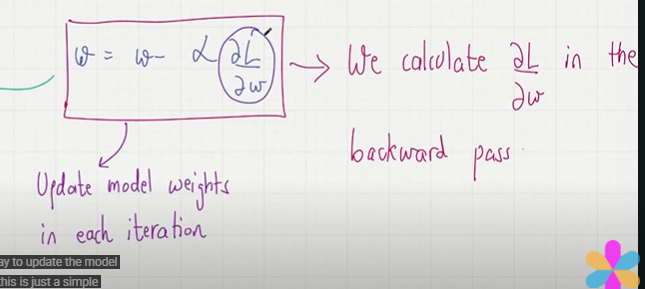 w = w - α ∂L/∂w → We calculate ∂L/∂w in the
backward pass.
Update model weights
in each iteration
ay to update the model
this is just a simple